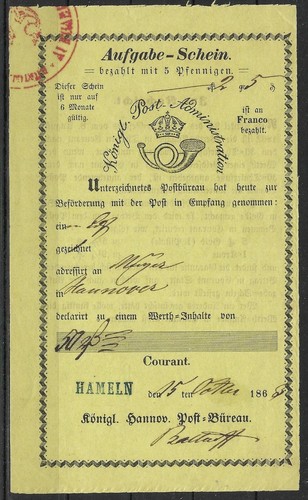 Aufgabe-Schein.
bezahlt mit 5 Pfennigen.
Dieser Schein
ist nur auf
6 Monate
gültig.
№ 5
ist an
Franco
bezahlt.
Königl. Post-Administration
Unterzeichnetes Postbüreau hat heute zur
Beförderung mit der Post in Empfang genommen:
ein
gezeichnet
adressirt an Meyer
in Hannover
declarirt zu einem Werth-Inhalte von
50
Courant.
HAMELN den 15 ten Octber 186
Königl. Hannov. Post-Büreau.